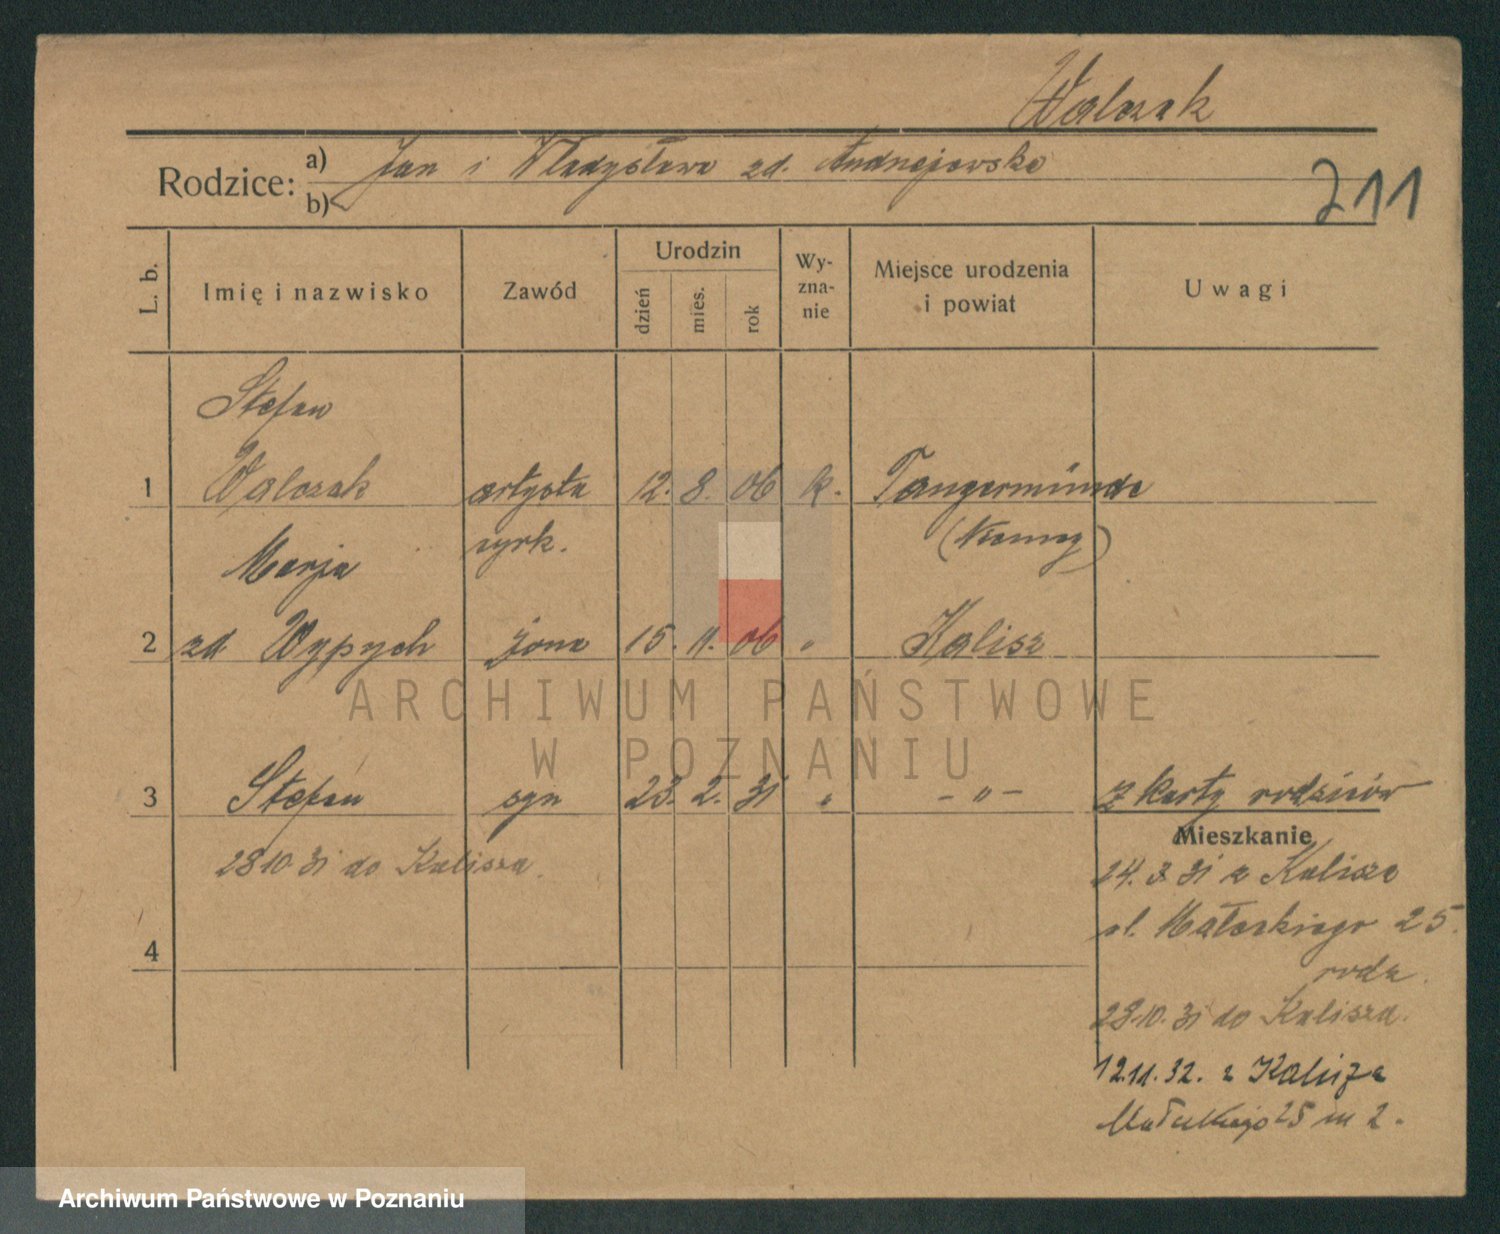 Walczak
Rodzice: a) Jan i Władysława zd. Andrzejewska
b)
711
L. b.
Imię i nazwisko
Zawód
Urodzin
dzień
mies.
rok
Wy-
zna-
nie
Miejsce urodzenia
i powiat
Uwagi
Stefan
1 Walczak artysta 12. 8. 06 k. Tangermünde
cyrk. (Niemcy)
Marja
2 zd Wypych żona 15. 11. 06 " Kalisz
ARCHIWUM PAŃSTWOWE
W POZNANIU
3 Stefan syn 23. 2. 31 " - " - z karty rodziców
Mieszkanie
28 10. 31 do Kalisza.
24. 3. 31 z Kalisza
ul. Małeckiego 25.
4
rodz.
28.10. 31 do Kalisza.
12.11.32. z Kalisza
Małeckiego 25 m 2.
Archiwum Państwowe w Poznaniu